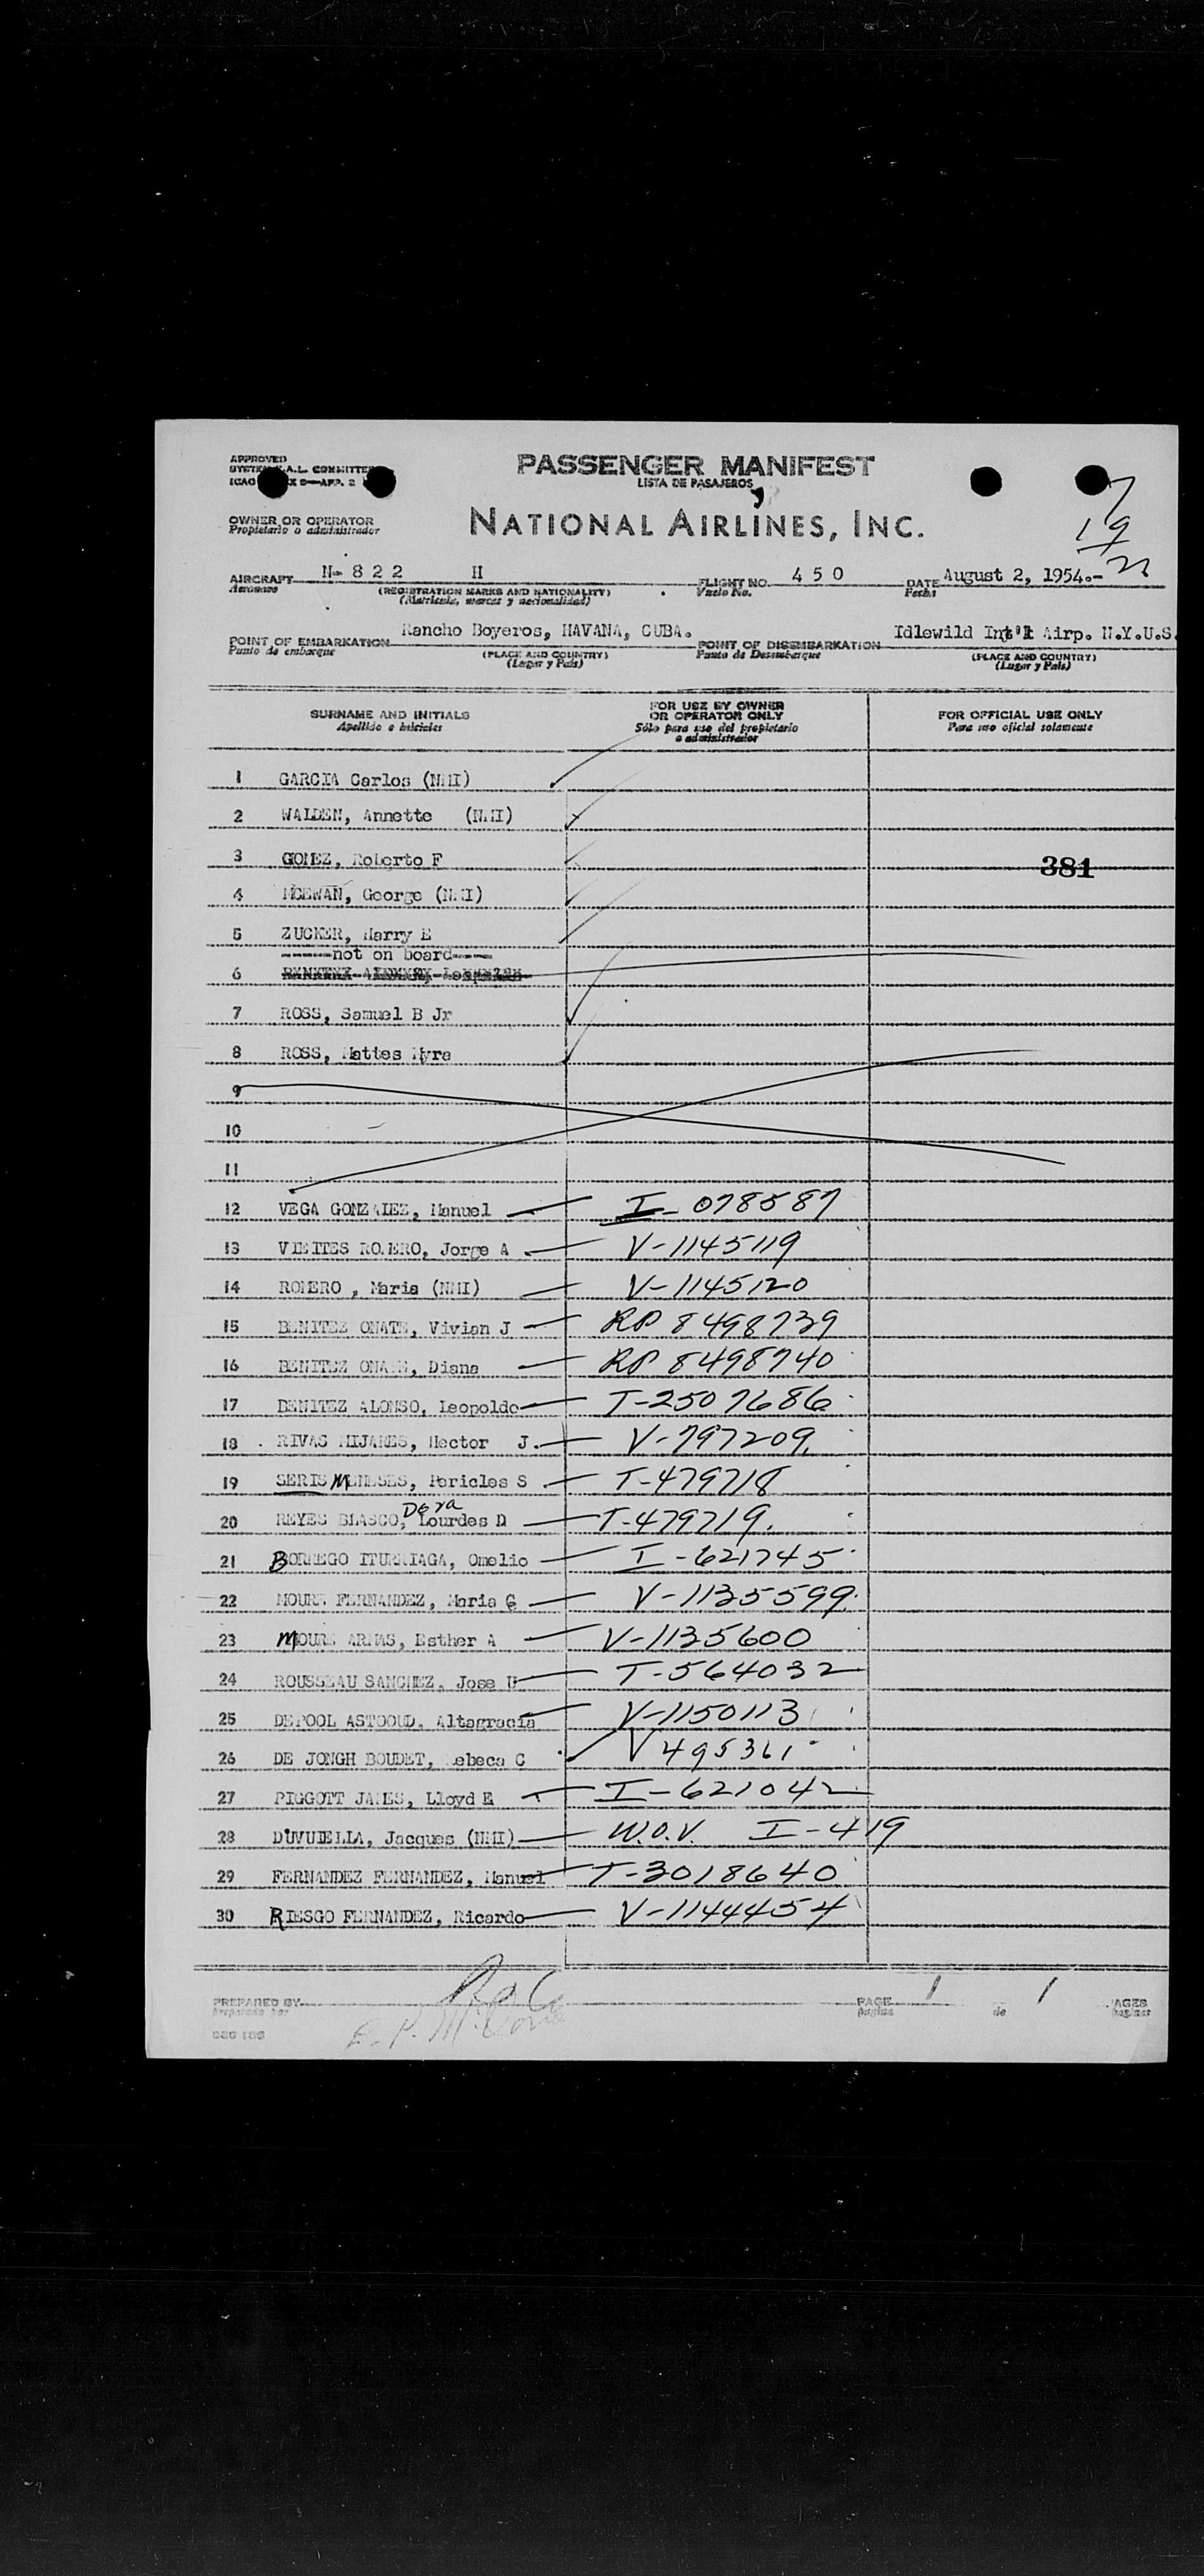 APPROVED
PASSENGER MANIFEST
LISTA DE PASAJEROS
OWNER OR OPERATOR
Propietario o administrador
NATIONAL AIRLINES, INC.
7
19
AIRCRAFT N-822 H FLIGHT NO. 450 DATE August 2, 1954.-
Aeronave (REGISTRATION MARKS AND NATIONALITY) Vuelo No. Fecha
(Matricula, marcas y nacionalidad)
POINT OF EMBARKATION Rancho Boyeros, HAVANA, CUBA. POINT OF DISEMBARKATION Idlewild Int'l Airp. N.Y.U.S.
Punto de embarque (PLACE AND COUNTRY) Punto de Desembarque (PLACE AND COUNTRY)
(Lugar y País) (Lugar y País)
SURNAME AND INITIALS FOR USE BY OWNER OR OPERATOR ONLY FOR OFFICIAL USE ONLY
Apellido e iniciales Sólo para uso del propietario o administrador Para uso oficial solamente
1 GARCIA Carlos (NMI)
2 WALDEN, Annette (NMI)
3 GOMEZ, Roberto F
381
4 MCEWAN, George (NMI)
5 ZUCKER, Harry E
-----not on board----
6
7 ROSS, Samuel B Jr
8 ROSS, Mattes Myra
9
10
11
12 VEGA GONZALEZ, Manuel I-078587
13 VIEITES ROMERO, Jorge A V-1145119
14 ROMERO , Maria (NMI) V-1145120
15 BENITEZ ONATE, Vivian J RP 8498739
16 BENITEZ ONATE, Diana RP 8498740
17 BENITEZ ALONSO, Leopoldo T-2507686
18 RIVAS MIJARES, Hector J. V-797209
19 SERIS MENESES, Pericles S T-479718
Dora
20 REYES BLASCO, Lourdes D T-479719
21 BORREGO ITURRIAGA, Omelio I-621745
22 MOURE FERNANDEZ, Maria G V-1135599
23 MOURE ARMAS, Esther A V-1135600
24 ROUSSEAU SANCHEZ, Jose U T-564032
25 DEPOOL ASTOOUD, Altagracia V-1150113
26 DE JONGH BOUDET, Rebeca C V 495361
27 PIGGOTT JAMES, Lloyd E I-621042
28 DUVUIELLA, Jacques (NMI) W.O.V. I-419
29 FERNANDEZ FERNANDEZ, Manuel T-3018640
30 RIESGO FERNANDEZ, Ricardo V-1144454
PREPARED BY PAGE 1 de 1 PAGES
Preparado por página paginas